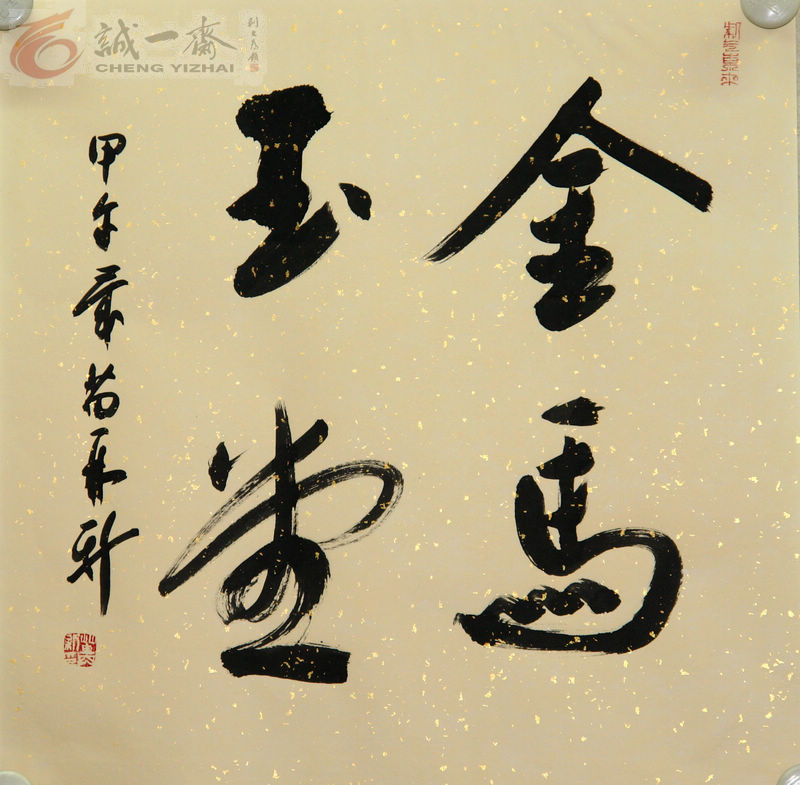 誠一齋
CHENG YIZHAI
金馬
玉堂
甲午歲苗再新